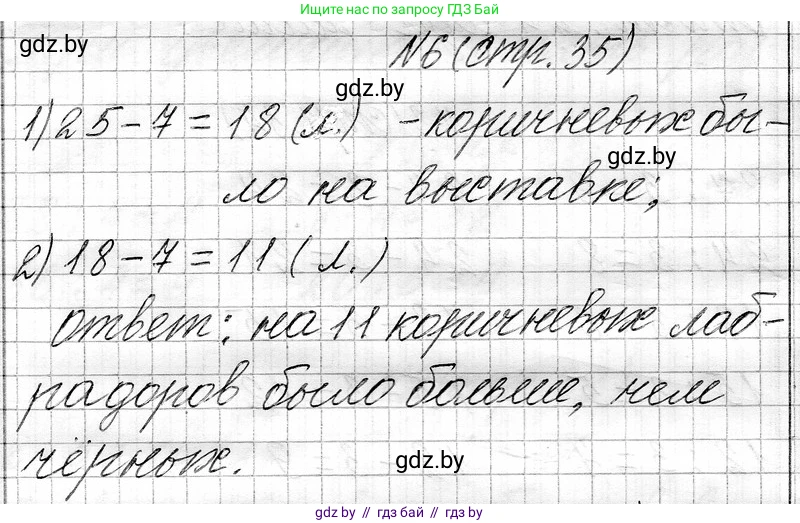 Ищите нас по запросу ГДЗ Бай
gdz.by
№6 (стр. 35)
gdz.by
1) 25 - 7 = 18 (л.) - коричневых бы-
gdz.by
ло на выставке;
2) 18 - 7 = 11 (л.)
ответ: на 11 коричневых лаб-
радоров было больше, чем
чёрных.
gdz.by
gdz.by // гдз бай // gdz.by